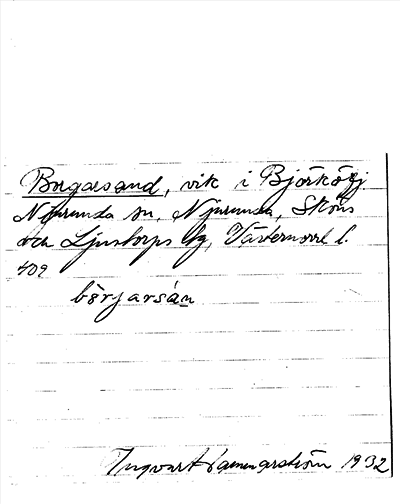 Borgarsand, vik i Björköfj
Njurunda sn, Njurunda, Sköns
och Ljustorps tg, Västernorrl l.
409
börjarsán
Ingvart Hammarström 1932